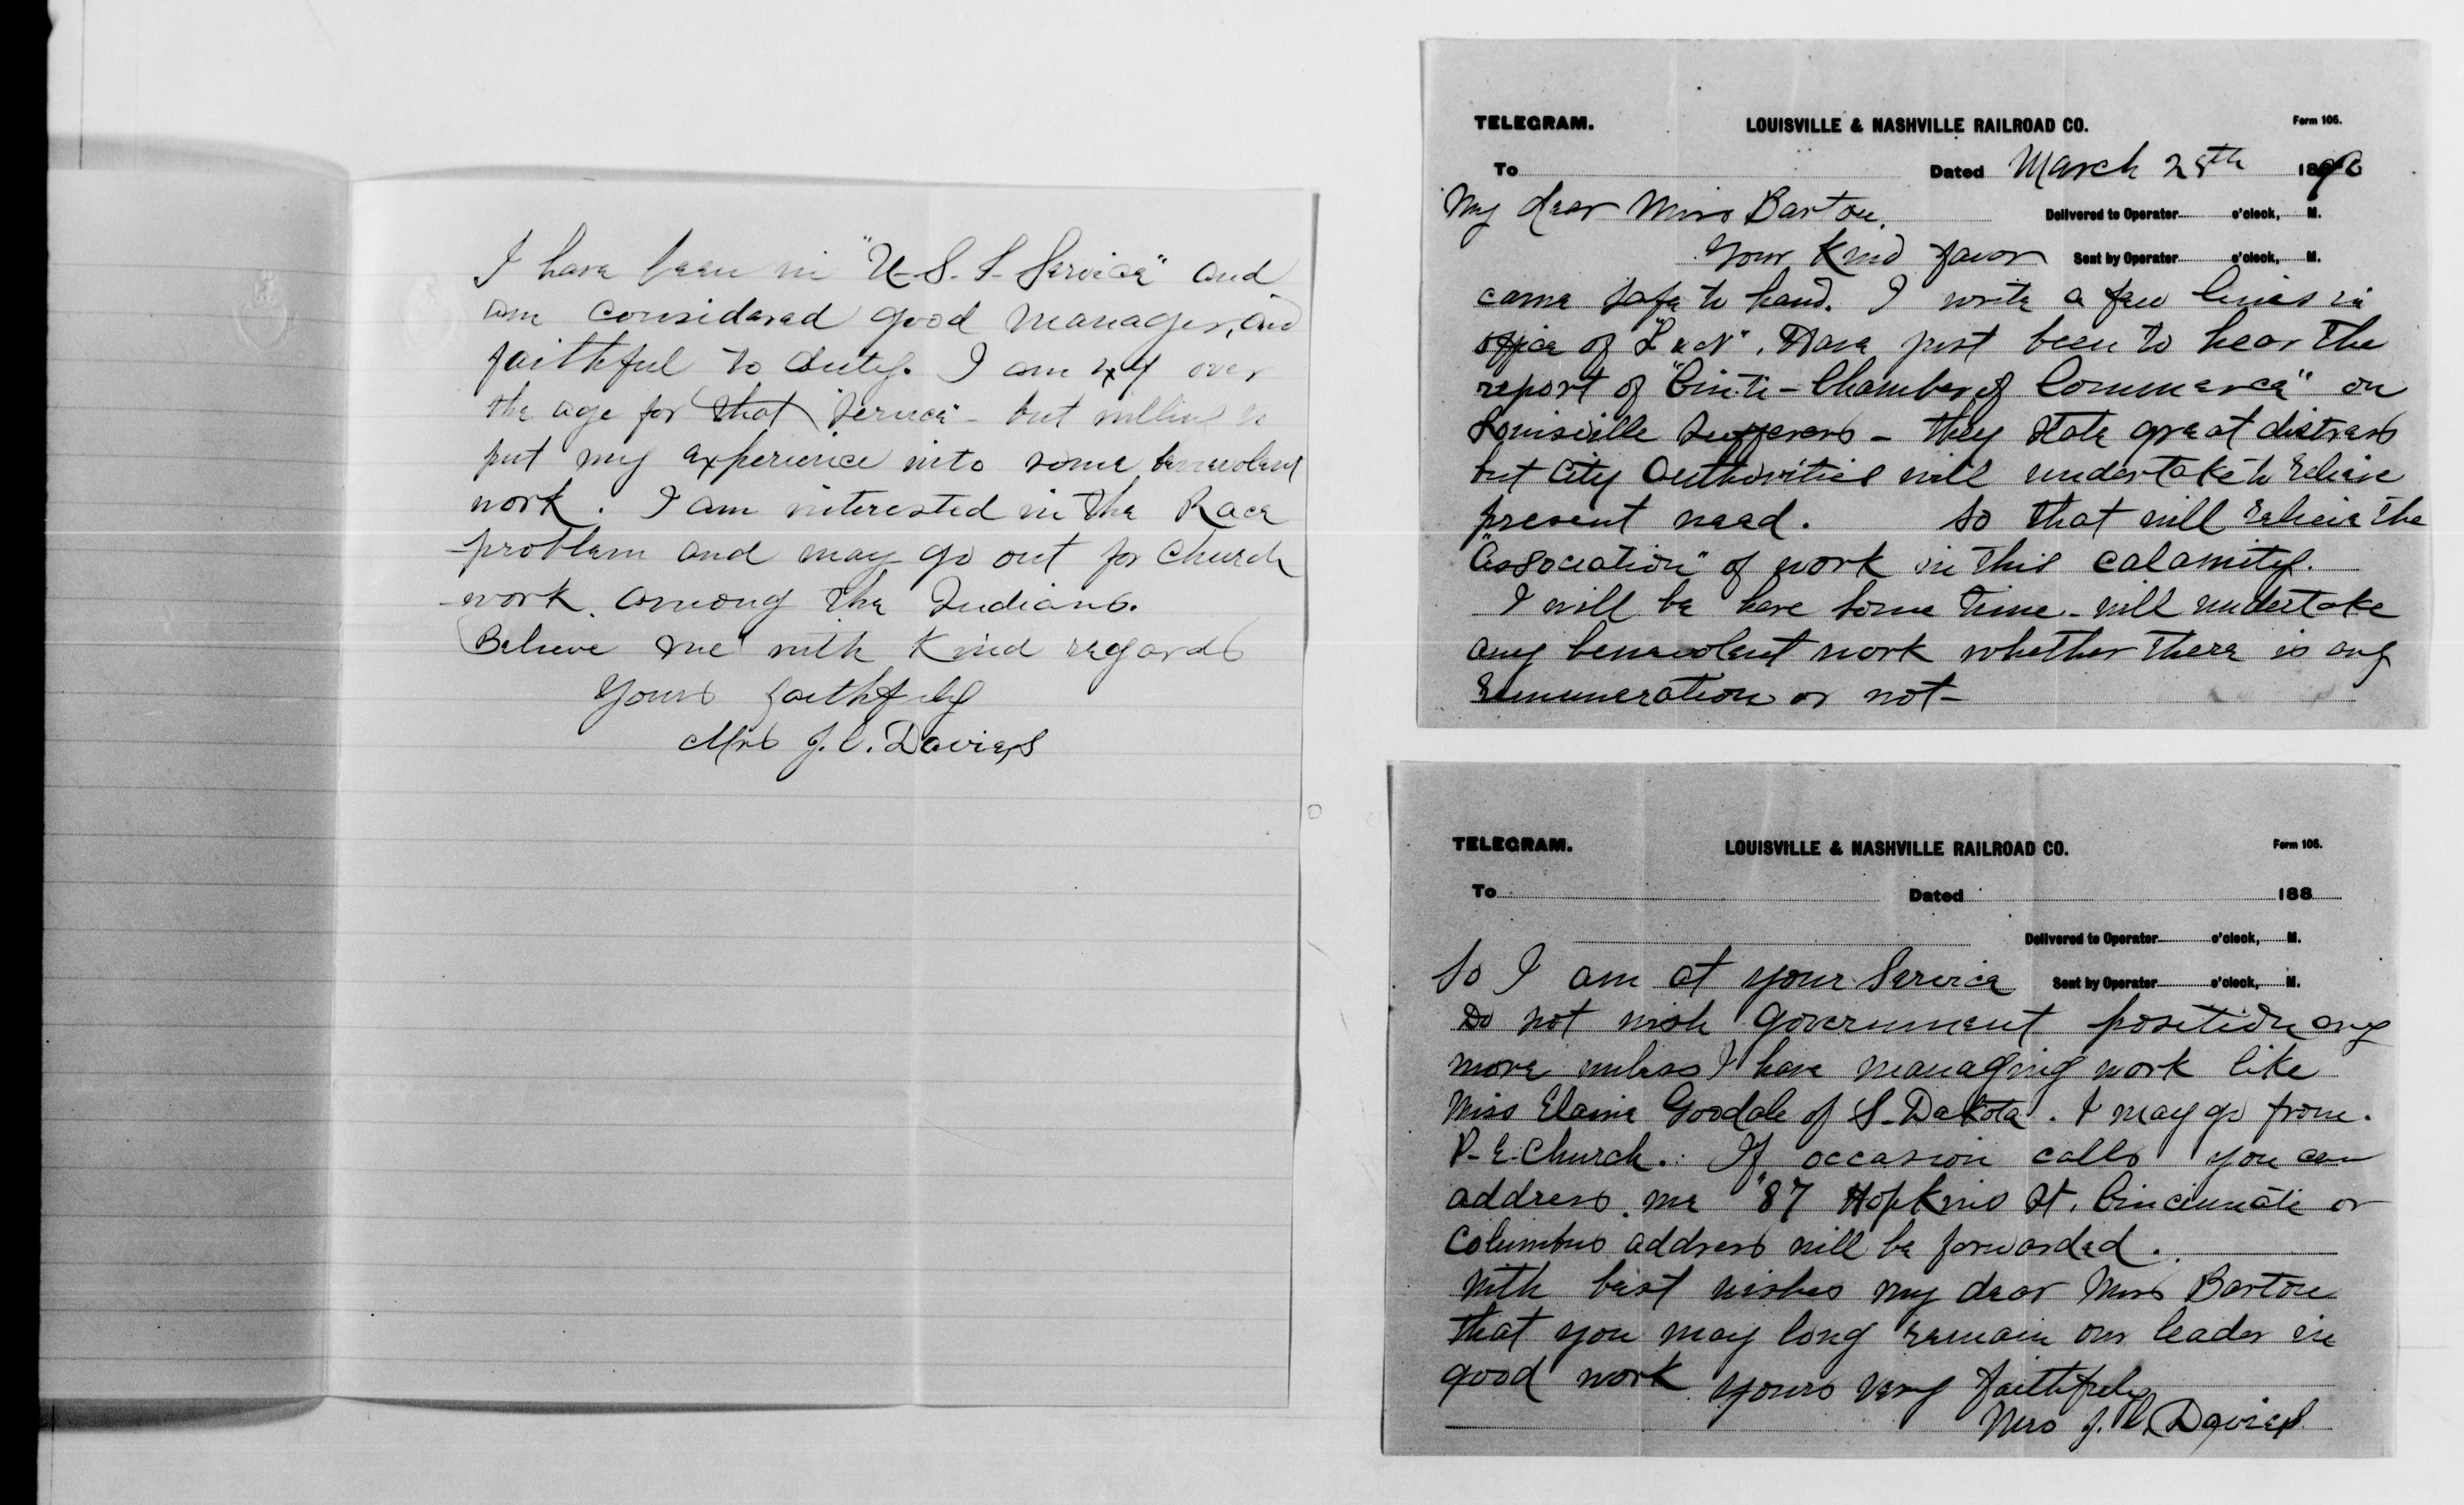 I have been in "U-S. I- Service" and
am considered good manager, and
faithful to duty. I am over
the age for that "service" - but willing to
put my experience into some benevolent
work. I am interested in the Race
problem and may go out for church
work among the Indians.
Believe me with kind regards
Yours faithfully
Mrs J. C. Davies
TELEGRAM. LOUISVILLE & NASHVILLE RAILROAD CO. Form 106.
To Dated March 28th 1890
My dear Miss Barton, Delivered to Operator o'clock, M.
Your kind favor Sent by Operator o'clock, M.
came safe to hand. I write a few lines in
office of "L & N". Have just been to hear the
report of "Cin'ti - Chamber of Commerce" on
Louisville sufferers - they state great distress
but City Authorities will undertake to relieve
present need. So that will relieve the
"Association" of work in this calamity.
I will be here some time - will undertake
any benevolent work whether there is any
remuneration or not -
TELEGRAM. LOUISVILLE & NASHVILLE RAILROAD CO. Form 106.
To Dated 188
Delivered to Operator o'clock, M.
So I am at your Service Sent by Operator o'clock, M.
Do not wish Government position any
more unless I have managing work like
Miss Elaine Goodale of S. Dakota. I may go from.
P. E. Church. If occasion calls you can
address me "87 Hopkins St. Cincinnati or
Columbus address will be forwarded.
With best wishes my dear Miss Barton
that you may long remain our leader in
good work Yours very faithfully
Mrs J. C. Davies